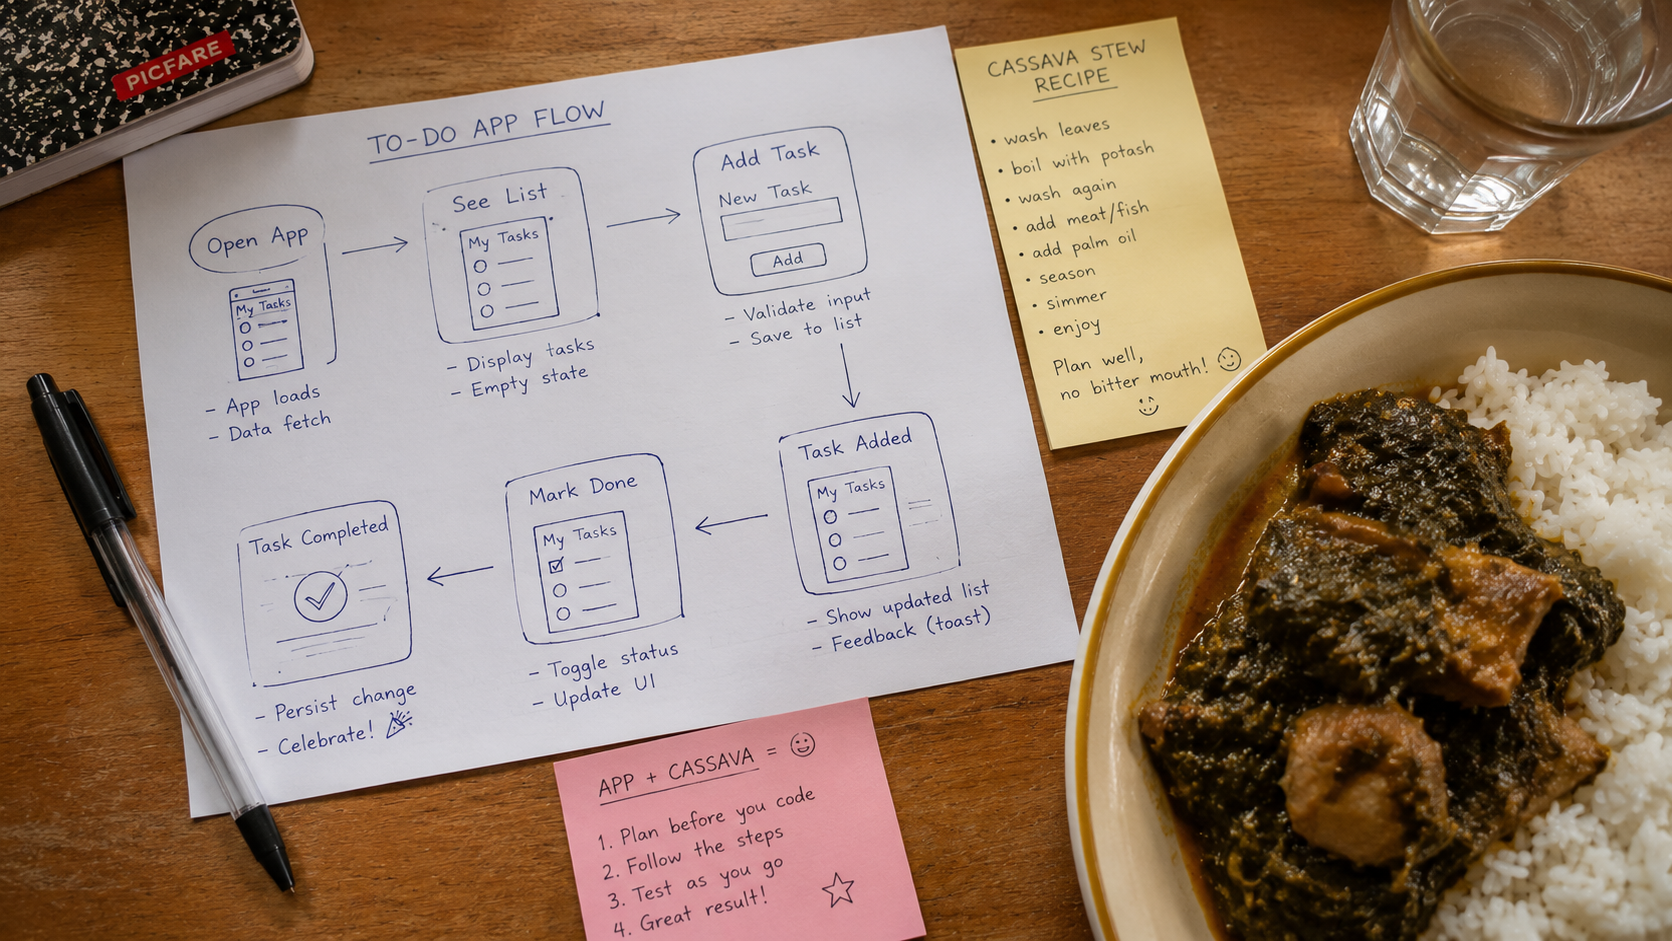 PICFARE
TO-DO APP FLOW
Open App
My Tasks
- App loads
- Data fetch
See List
My Tasks
- Display tasks
- Empty state
Add Task
New Task
Add
- Validate input
- Save to list
Task Added
My Tasks
- Show updated list
- Feedback (toast)
Mark Done
My Tasks
- Toggle status
- Update UI
Task Completed
- Persist change
- Celebrate!
CASSAVA STEW
RECIPE
• wash leaves
• boil with potash
• wash again
• add meat/fish
• add palm oil
• season
• simmer
• enjoy
Plan well,
no bitter mouth!
APP + CASSAVA =
1. Plan before you code
2. Follow the steps
3. Test as you go
4. Great result!